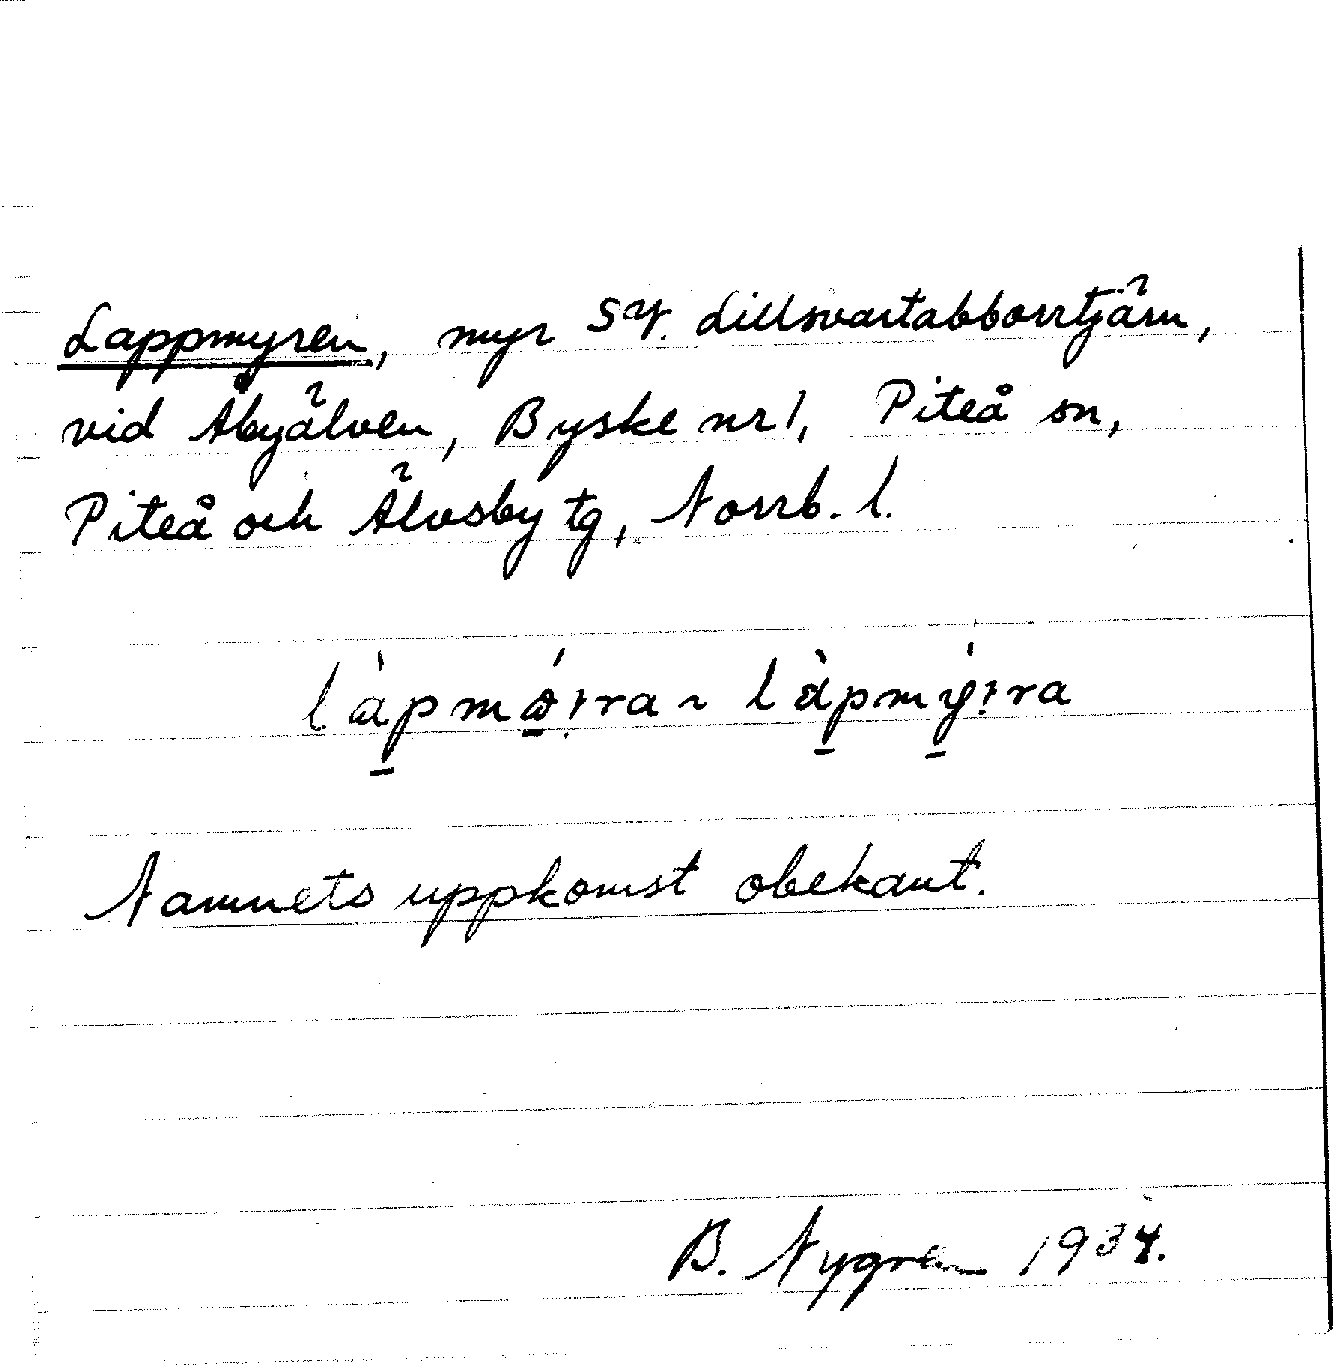 Lappmyren, myr SV. Lillsvartabborrtjärn,
vid Åbyälven, Byske nr 1, Piteå sn,
Piteå och Älvsby tg, Norrb. l.
Namnets uppkomst obekant.
B. Nygren 1934.